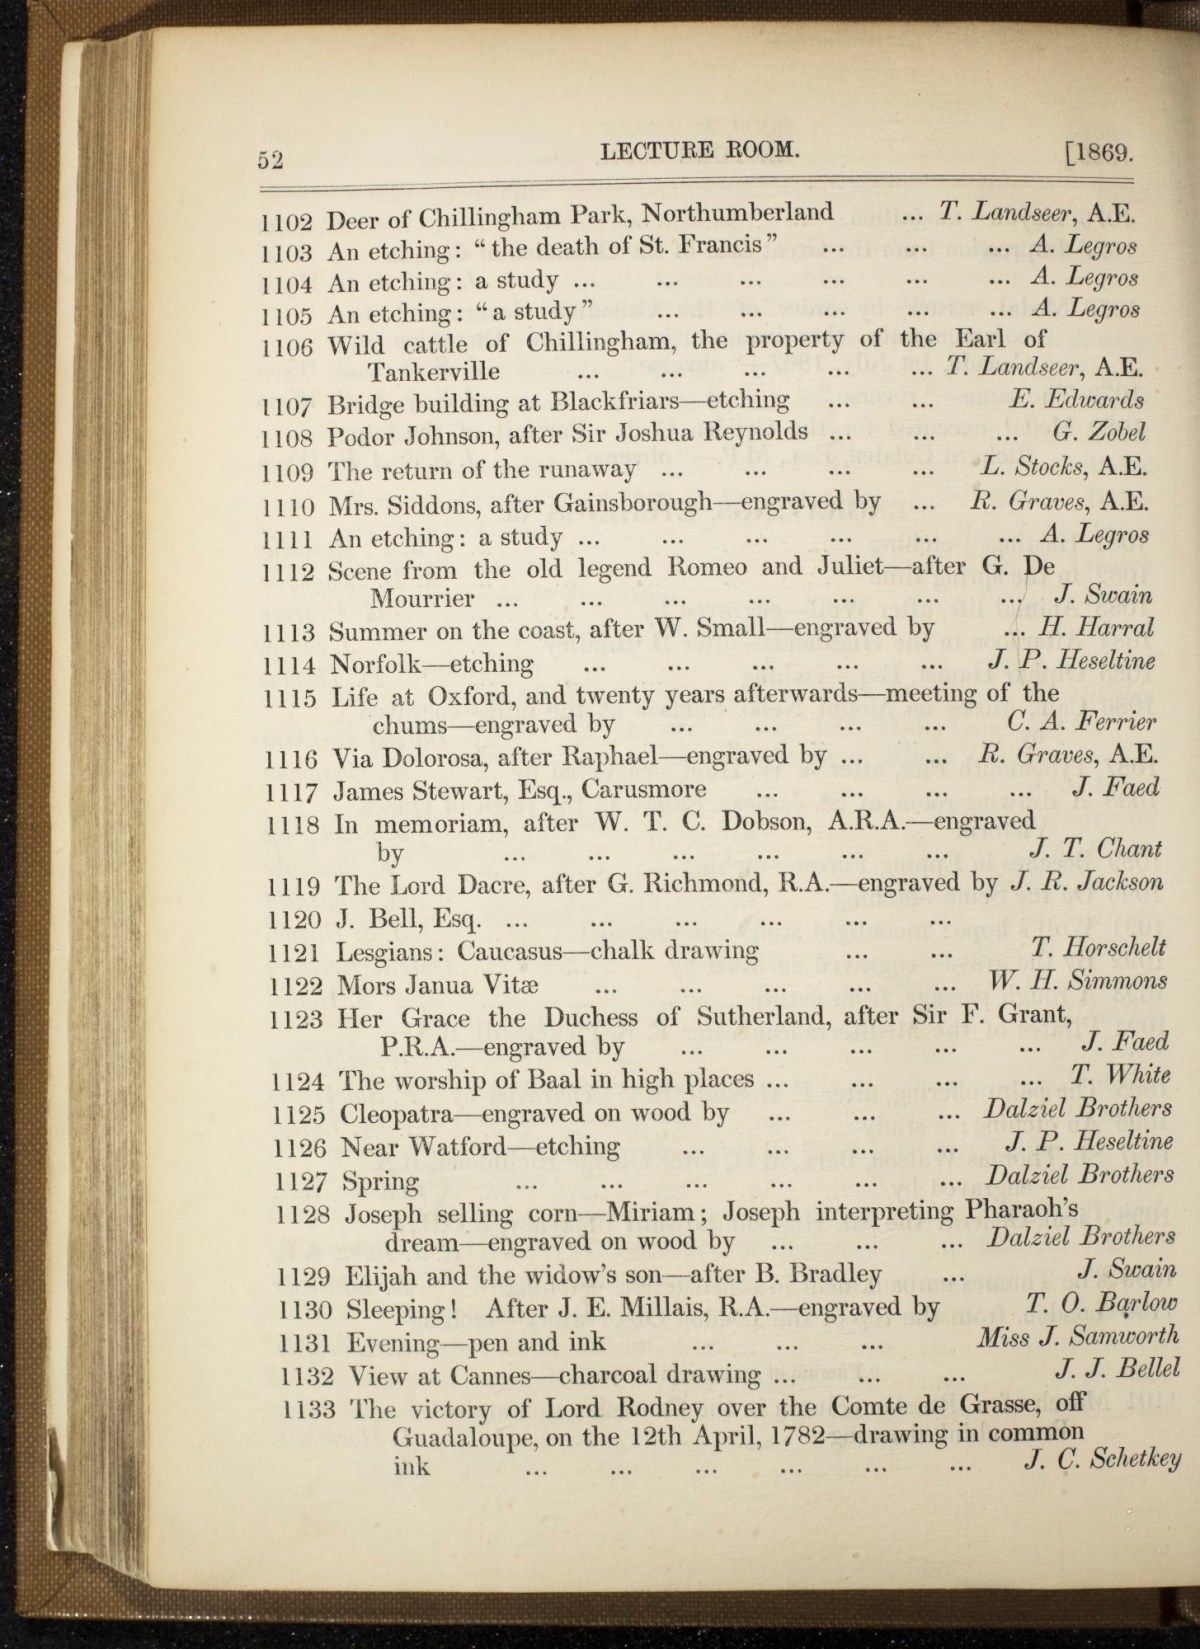 52 LECTURE ROOM. [1869.
1102 Deer of Chillingham Park, Northumberland ... T. Landseer, A.E.
1103 An etching: “the death of St. Francis” ... ... ... A. Legros
1104 An etching: a study ... ... ... ... ... ... A. Legros
1105 An etching: “a study” ... ... ... ... ... A. Legros
1106 Wild cattle of Chillingham, the property of the Earl of
Tankerville ... ... ... ... ... T. Landseer, A.E.
1107 Bridge building at Blackfriars—etching ... ... E. Edwards
1108 Podor Johnson, after Sir Joshua Reynolds ... ... ... G. Zobel
1109 The return of the runaway ... ... ... ... L. Stocks, A.E.
1110 Mrs. Siddons, after Gainsborough—engraved by ... R. Graves, A.E.
1111 An etching: a study ... ... ... ... ... ... A. Legros
1112 Scene from the old legend Romeo and Juliet—after G. De
Mourrier ... ... ... ... ... ... ... J. Swain
1113 Summer on the coast, after W. Small—engraved by ... H. Harral
1114 Norfolk—etching ... ... ... ... ... J. P. Heseltine
1115 Life at Oxford, and twenty years afterwards—meeting of the
chums—engraved by ... ... ... ... C. A. Ferrier
1116 Via Dolorosa, after Raphael—engraved by ... ... R. Graves, A.E.
1117 James Stewart, Esq., Carusmore ... ... ... ... J. Faed
1118 In memoriam, after W. T. C. Dobson, A.R.A.—engraved
by ... ... ... ... ... ... J. T. Chant
1119 The Lord Dacre, after G. Richmond, R.A.—engraved by J. R. Jackson
1120 J. Bell, Esq. ... ... ... ... ... ...
1121 Lesgians: Caucasus—chalk drawing ... ... T. Horschelt
1122 Mors Janua Vitæ ... ... ... ... ... W. H. Simmons
1123 Her Grace the Duchess of Sutherland, after Sir F. Grant,
P.R.A.—engraved by ... ... ... ... ... J. Faed
1124 The worship of Baal in high places ... ... ... ... T. White
1125 Cleopatra—engraved on wood by ... ... ... Dalziel Brothers
1126 Near Watford—etching ... ... ... ... J. P. Heseltine
1127 Spring ... ... ... ... ... ... Dalziel Brothers
1128 Joseph selling corn—Miriam; Joseph interpreting Pharaoh's
dream—engraved on wood by ... ... ... Dalziel Brothers
1129 Elijah and the widow's son—after B. Bradley ... J. Swain
1130 Sleeping! After J. E. Millais, R.A.—engraved by T. O. Barlow
1131 Evening—pen and ink ... ... ... Miss J. Samworth
1132 View at Cannes—charcoal drawing ... ... ... J. J. Bellel
1133 The victory of Lord Rodney over the Comte de Grasse, off
Guadaloupe, on the 12th April, 1782—drawing in common
ink ... ... ... ... ... ... J. C. Schetkey